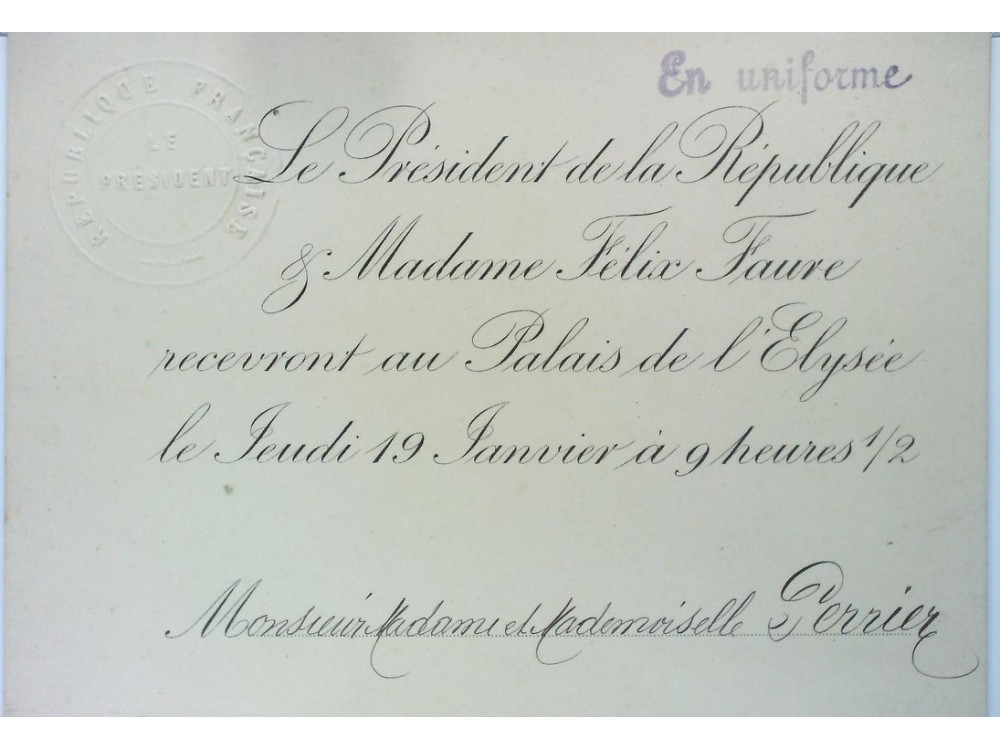 En uniforme
RÉPUBLIQUE FRANÇAISE
LE
PRÉSIDENT
Le Président de la République
& Madame Félix Faure
recevront au Palais de l'Elysée
le Jeudi 19 Janvier à 9 heures 1/2
Monsieur Madame et Mademoiselle Perrier